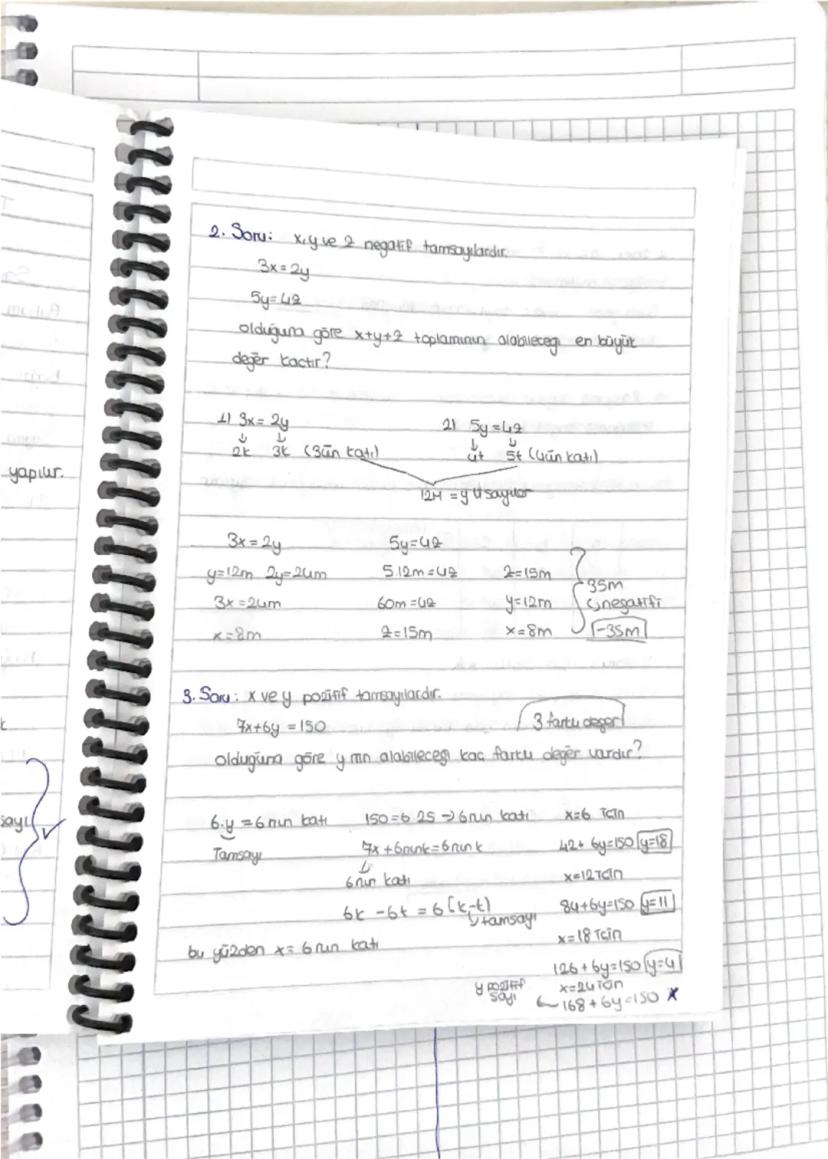 yapılır.
sayı
2. Soru: x,y ve z negatif tamsayılardır.
3x = 2y
5y=4z
olduğuna göre x+y+z toplamının alabileceği en büyük
değer kaçtır?
1) 3x = 2y 2) 5y=4z
2k 3k (3ün katı) 4t 5t (4ün katı)
12M = y li sayılar
3x = 2y 5y=4z
y=12m 2y=24m 5.12m=4z z=15m
3x=24m 60m=4z y=12m
x=8m z=15m x=8m
35m
negatifi
-35m
3. Soru: x ve y pozitif tamsayılardır.
7x+6y=150 3 farklı değer
olduğuna göre y nin alabileceği kaç farklı değer vardır?
6.y = 6nın katı 150=6.25 → 6nın katı x=6 için
Tamsayı 7x + 6nın k=6nın k 42+ 6y=150 y=18
6nın katı x=12 için
6k - 6t = 6(k-t) 84+6y=150 y=11
tamsayı
bu yüzden x = 6nın katı x=18 için
126+6y=150 y=4
y pozitif x=24 için
sayı 168+6y=150 x